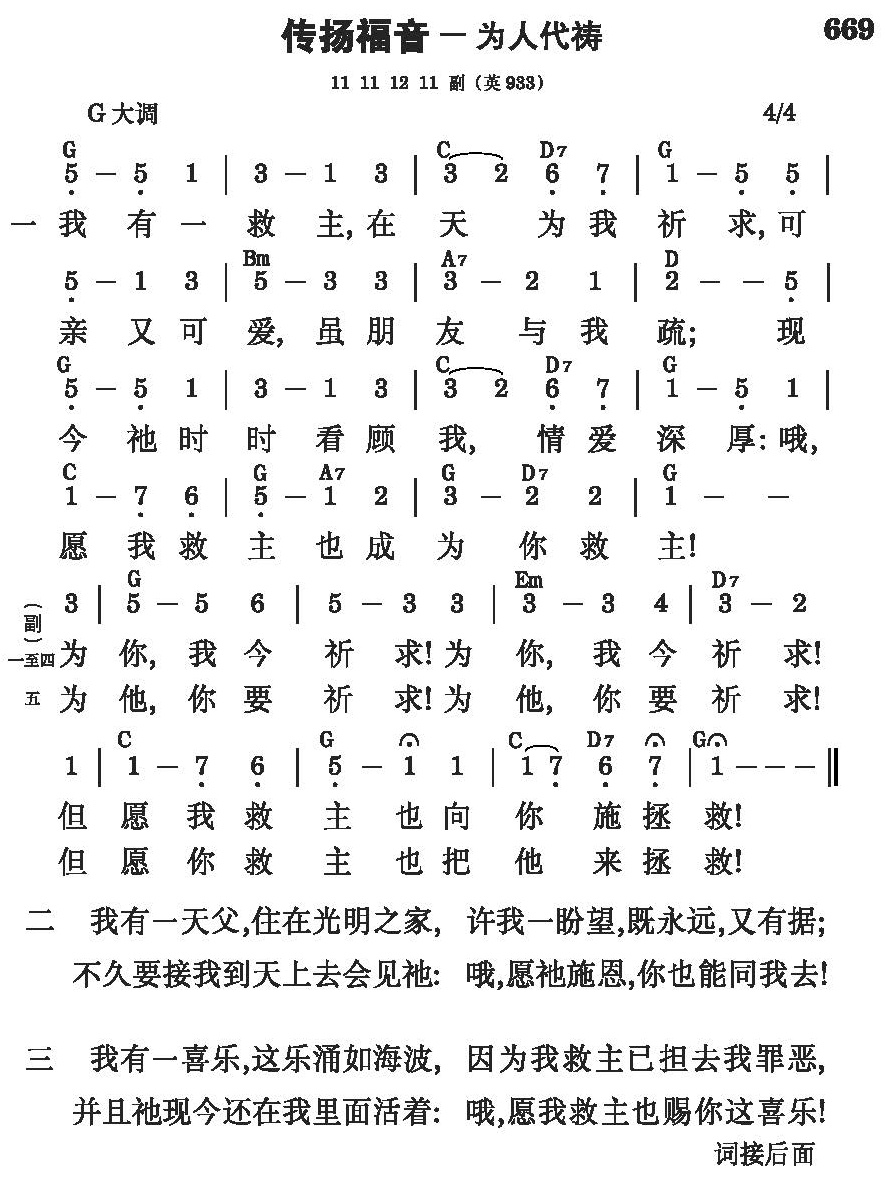 传扬福音－为人代祷 669
11 11 12 11 副（英933）
G大调 4/4
G C D7 G
5 － 5 1 | 3 － 1 3 | 3 2 6 7 | 1 － 5 5 |
一 我 有 一 救 主, 在 天 为 我 祈 求, 可
Bm A7 D
5 － 1 3 | 5 － 3 3 | 3 － 2 1 | 2 － － 5 |
亲 又 可 爱, 虽 朋 友 与 我 疏; 现
G C D7 G
5 － 5 1 | 3 － 1 3 | 3 2 6 7 | 1 － 5 1 |
今 祂 时 时 看 顾 我, 情 爱 深 厚: 哦,
C G A7 G D7 G
1 － 7 6 | 5 － 1 2 | 3 － 2 2 | 1 － －
愿 我 救 主 也 成 为 你 救 主!
G Em D7
3 | 5 － 5 6 | 5 － 3 3 | 3 － 3 4 | 3 － 2
（副）
一至四 为 你, 我 今 祈 求! 为 你, 我 今 祈 求!
五 为 他, 你 要 祈 求! 为 他, 你 要 祈 求!
C G C D7 G
1 | 1 － 7 6 | 5 － 1 1 | 1 7 6 7 | 1 － － － ‖
但 愿 我 救 主 也 向 你 施 拯 救!
但 愿 你 救 主 也 把 他 来 拯 救!
二 我有一天父,住在光明之家, 许我一盼望,既永远,又有据;
不久要接我到天上去会见祂: 哦,愿祂施恩,你也能同我去!
三 我有一喜乐,这乐涌如海波, 因为我救主已担去我罪恶,
并且祂现今还在我里面活着: 哦,愿我救主也赐你这喜乐!
词接后面